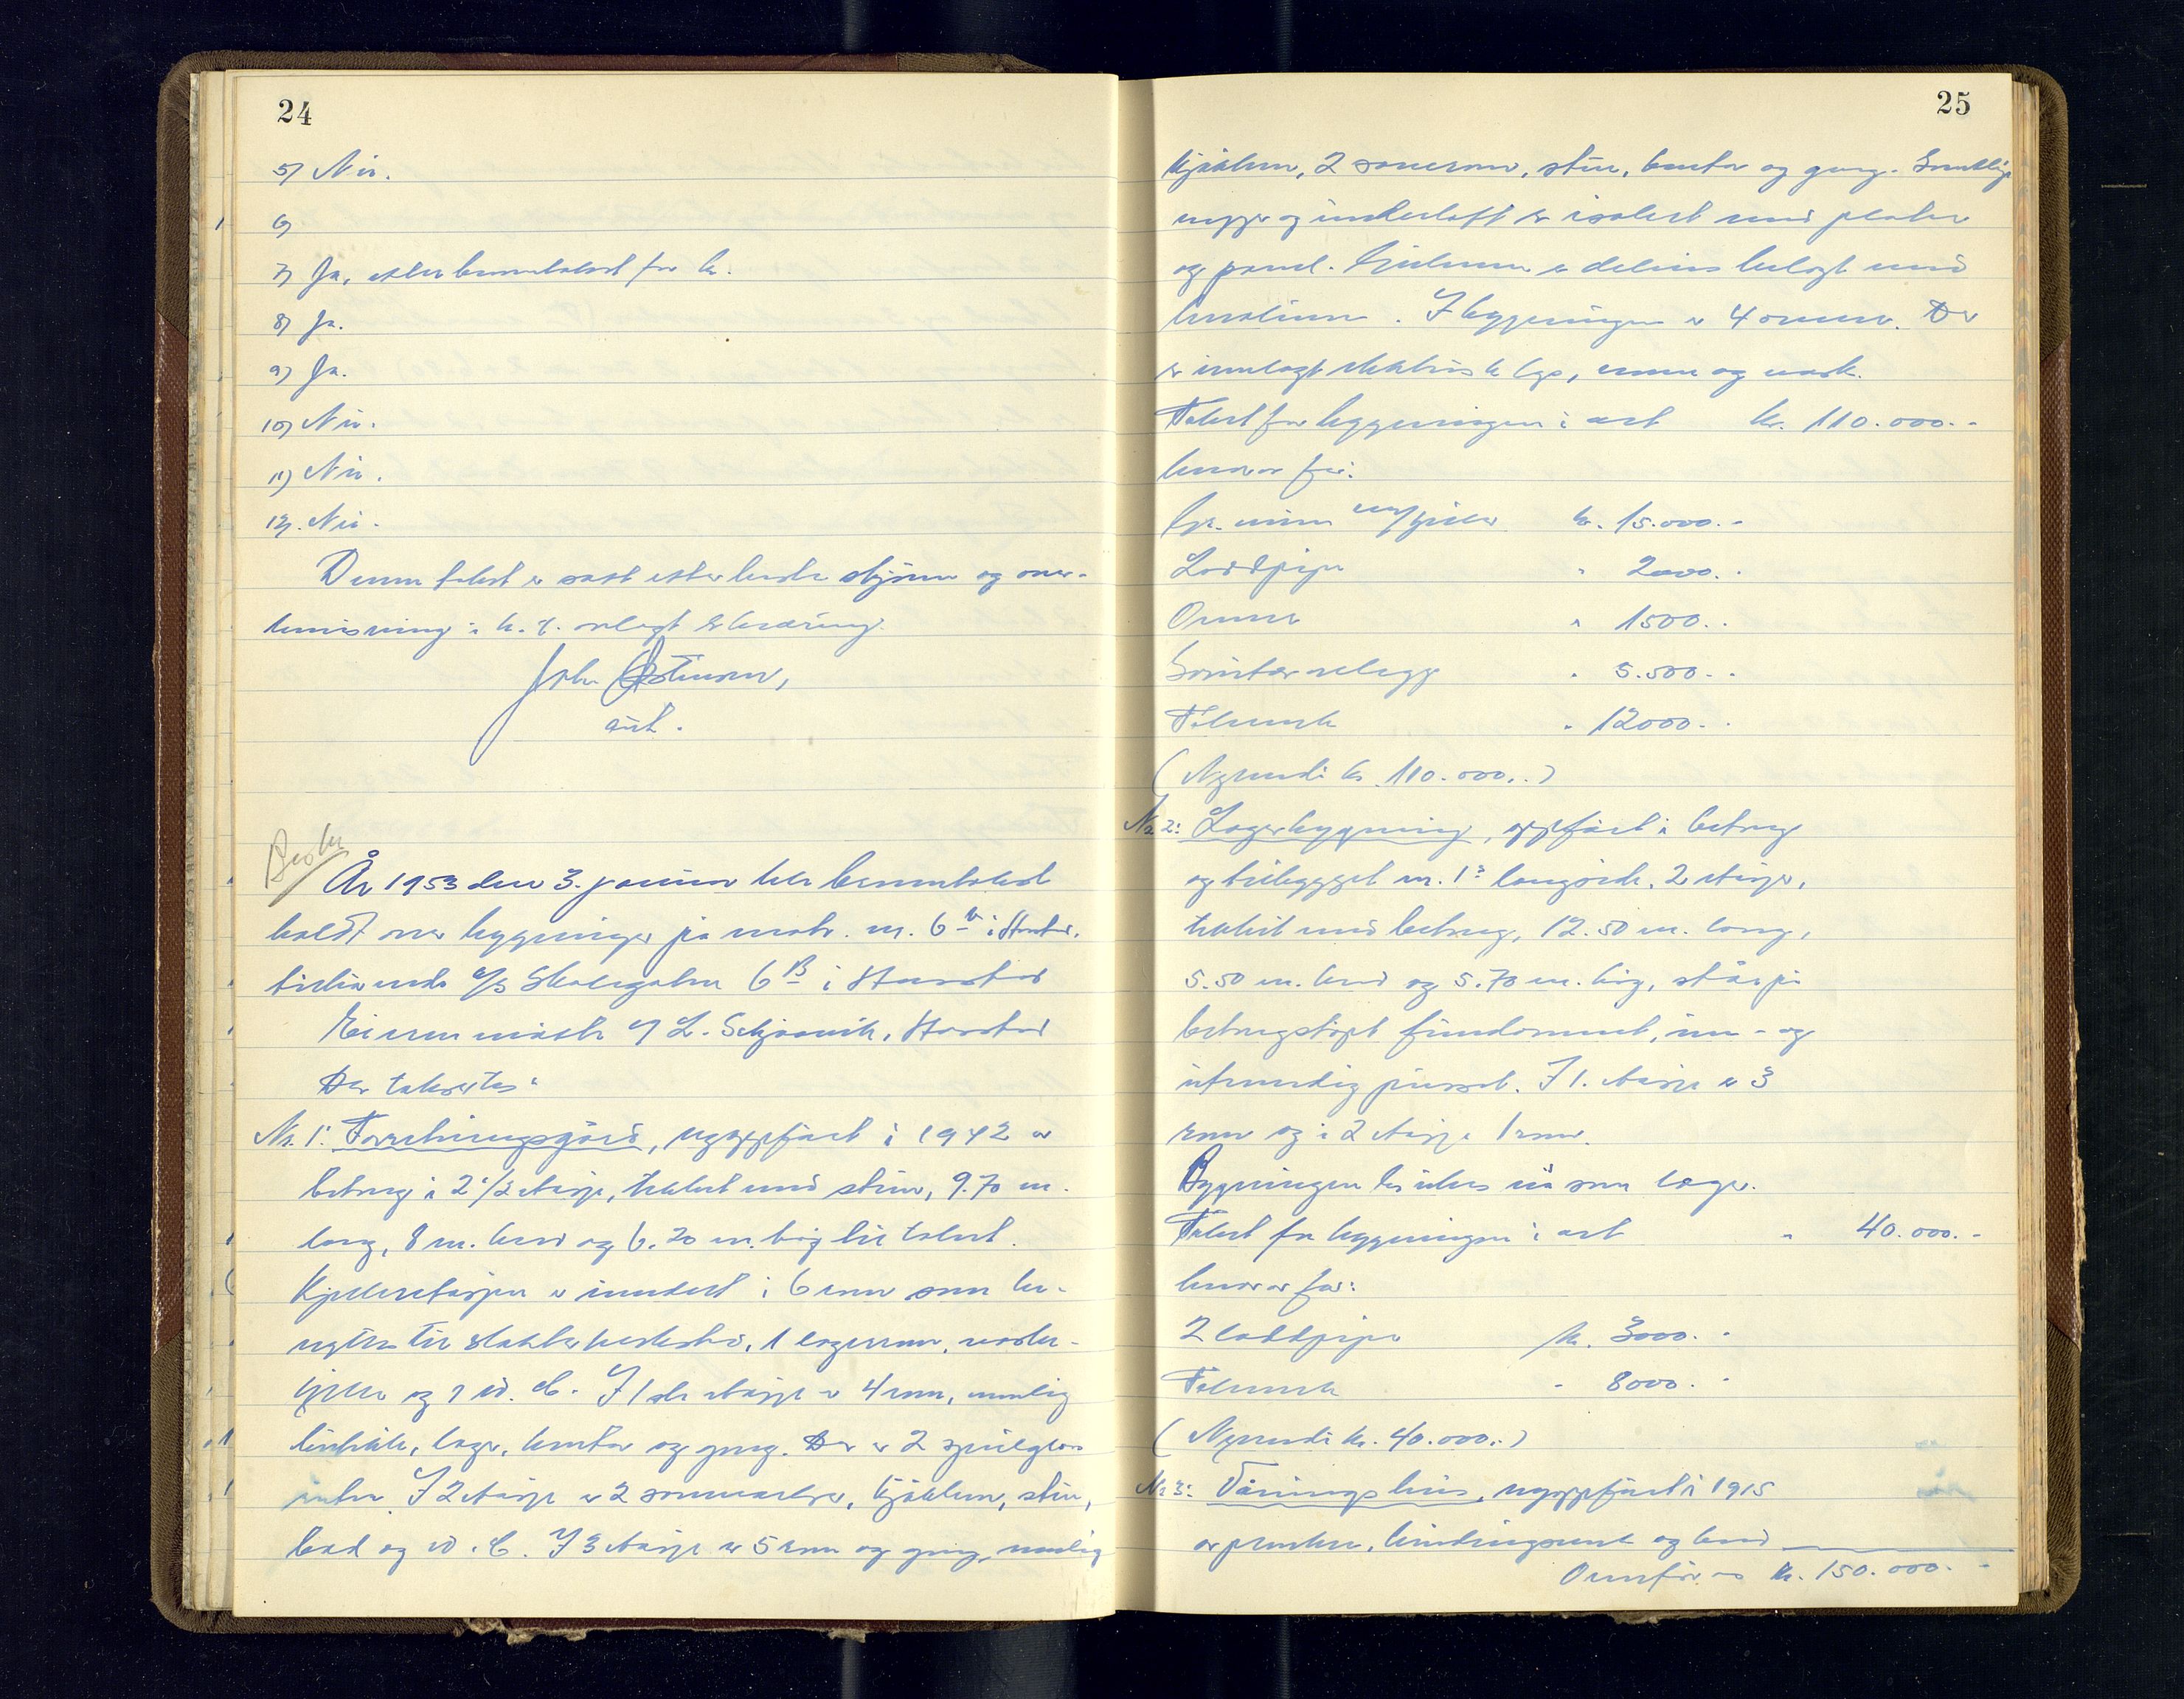 24
5) Nei.
6)
7) Ja, etter branntakst for kr.
8) Ja.
9) Ja.
10) Nei.
11) Nei.
12) Nei.
Denne takst er satt etter beste skjönn og over-
bevisning i h. t. avlagt erklæring.
John
aut.
År 1953 den 3. januar ble branntakst
holdt over bygninger på matr. nr. 6 b i Harstad.
tilhörende A/S Skolegaten 6 B i Harstad
Eieren mötte v/ L. Schjoavik, Harstad
Der taksertes:
Nr. 1: Forretningsgård, nyoppfört i 1942 av
betong i 2 1/2 etasje, tekket med stein, 9.70 m.
lang, 8 m. bred og 6.20 m. høg til takset.
Kjelleretasjen er inndelt i 6 rom som be-
nyttes til slakterverksted, 1 lagerrom, vaske-
kjeller og 1 W. C. I 1ste etasje er 4 rom, nemlig
butikk, lager, kontor og gang. Der er 2 speilglass
ruter. I 2 etasje er 2 soveværelser, kjökken, stue,
bad og W. C. I 3 etasje er 5 rom og gang, nemlig
25
kjökken, 2 soverom, stue, kontor og gang. Samtlige
vegger og underloft er isolert med plater
og panel. Gulvene er delvis belagt med
linoleum. I bygningen er 4 ovner. Der
er innlagt elektrisk lys, vann og vask.
Takst for bygningen i alt kr. 110.000.-
herav for:
Gr. murer m/peler kr. 15.000.-
Loddpipe " 2000.-
Ovner " 1500.-
Sanitæranlegg " 5.500.-
Tekverk " 12000.-
(Nyverdi kr. 110.000.-)
Nr. 2: Lagerbygning, oppfört i betong
og tilbygget nr. 1's langside. 2 etasjer,
tekket med betong, 12.50 m. lang,
5.50 m. bred og 5.70 m. høg, står på
betongstöpt fundament, inn- og
utvendig pusset. I 1. etasje er 3
rom og i 2 etasje 1 rom.
Bygningen brukes nå som lager.
Takst for bygningen i alt " 40.000.-
herav for:
2 loddpiper kr. 3000.-
Tekverk " 8000.-
(Nyverdi kr. 40.000.-)
Nr 3: Våningshus, nyoppfört i 1915
av planker, bindingsverk og bord
Overföres kr. 150.000.-